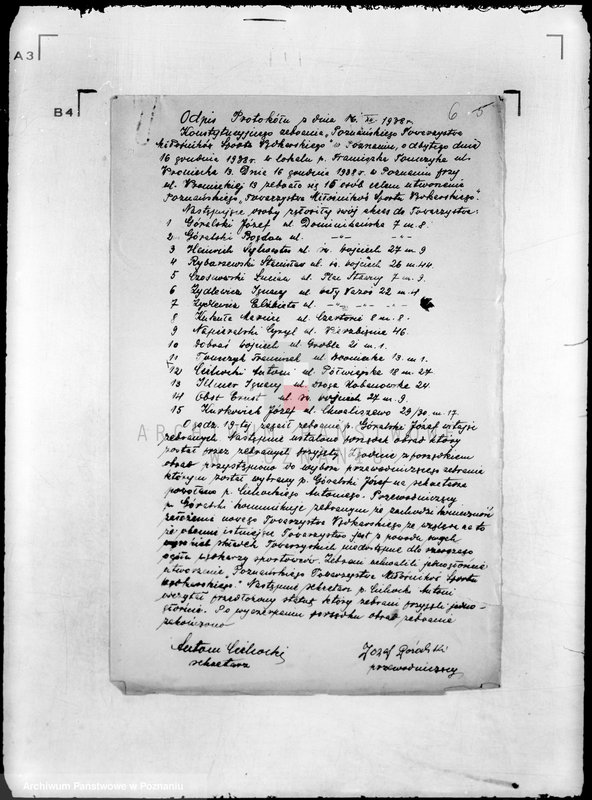 A3
B4
6 5
Odpis Protokółu z dnia 16. XII 1938 r.
Konstytucyjnego zebrania "Poznańskiego Towarzystwa
Miłośników Sportu Wędkarskiego" w Poznaniu, odbytego dnia
16 grudnia 1938 r. w lokalu p. Franciszka Tomczyka ul.
Wroniecka 13. Dnia 16 grudnia 1938 r. w Poznaniu przy
ul. Wronieckiej 13 zebrało się 15 osób celem utworzenia
"Poznańskiego Towarzystwa Miłośników Sportu Wędkarskiego".
Następujące osoby zgłosiły swój akces do Towarzystwa:
1 Góralski Józef ul. Dominikańska 7 m. 8
2 Góralski Bogdan ul. -"- -"-
3 Heinrich ul. św. Wojciech 27 m. 9
4 Rybarzewski Stanisław ul. św. Wojciech 26 m. 44.
5 Czosnowski Lucjan ul. Plac Sławny 7 m. 3.
6 Żydlewicz Ignacy ul. Wały 22 m. 4
7 Żydlewicz Elżbieta ul. -"- -"-
8 Kukuła Marcin ul. 8 m. 8.
9 Napieralski Cyryl ul. Wierzbięcice 46.
10 Wojciech ul. Grobla 21 m. 1.
11 Tomczyk Franciszek ul. Wroniecka 13. m. 1
12 Cichocki Antoni ul. Półwiejska 18 m. 27.
13 Illmer Ignacy ul. Droga Urbanowska 24.
14 Obst Ernst ul. św. Wojciech 27 m. 9.
15 Kurkowiak Józef ul. Chwaliszewo 29/30. m. 17.
O godz. 19-tej zagaił zebranie p. Góralski Józef witając
zebranych. Następnie ustalono porządek obrad który
został przez zebranych przyjęty. Zgodnie z porządkiem
obrad przystąpiono do wyboru przewodniczącego zebrania
którym został wybrany p. Góralski Józef na sekretarza
powołano p. Cichockiego Antoniego. Przewodniczący
p. Góralski komunikuje zebranym że zachodzi konieczność
założenia nowego Towarzystwa Wędkarskiego ze względu na to
że obecnie istniejące Towarzystwo jest z powodu swych
składek Towarzyskich niedostępne dla szerszego
ogółu wędkarzy sportowców. Zebrani uchwalili jednogłośnie
utworzenie "Poznańskiego Towarzystwa Miłośników Sportu
Wędkarskiego". Następnie sekretarz p. Cichocki Antoni
odczytał przedłożony statut który zebrani przyjęli jedno-
głośnie. Po wyczerpaniu porządku obrad zebranie
zakończono
Antoni Cichocki
sekretarz
Józef Góralski
przewodniczący
ARCHIWUM PAŃSTWOWE
W POZNANIU
Archiwum Państwowe w Poznaniu